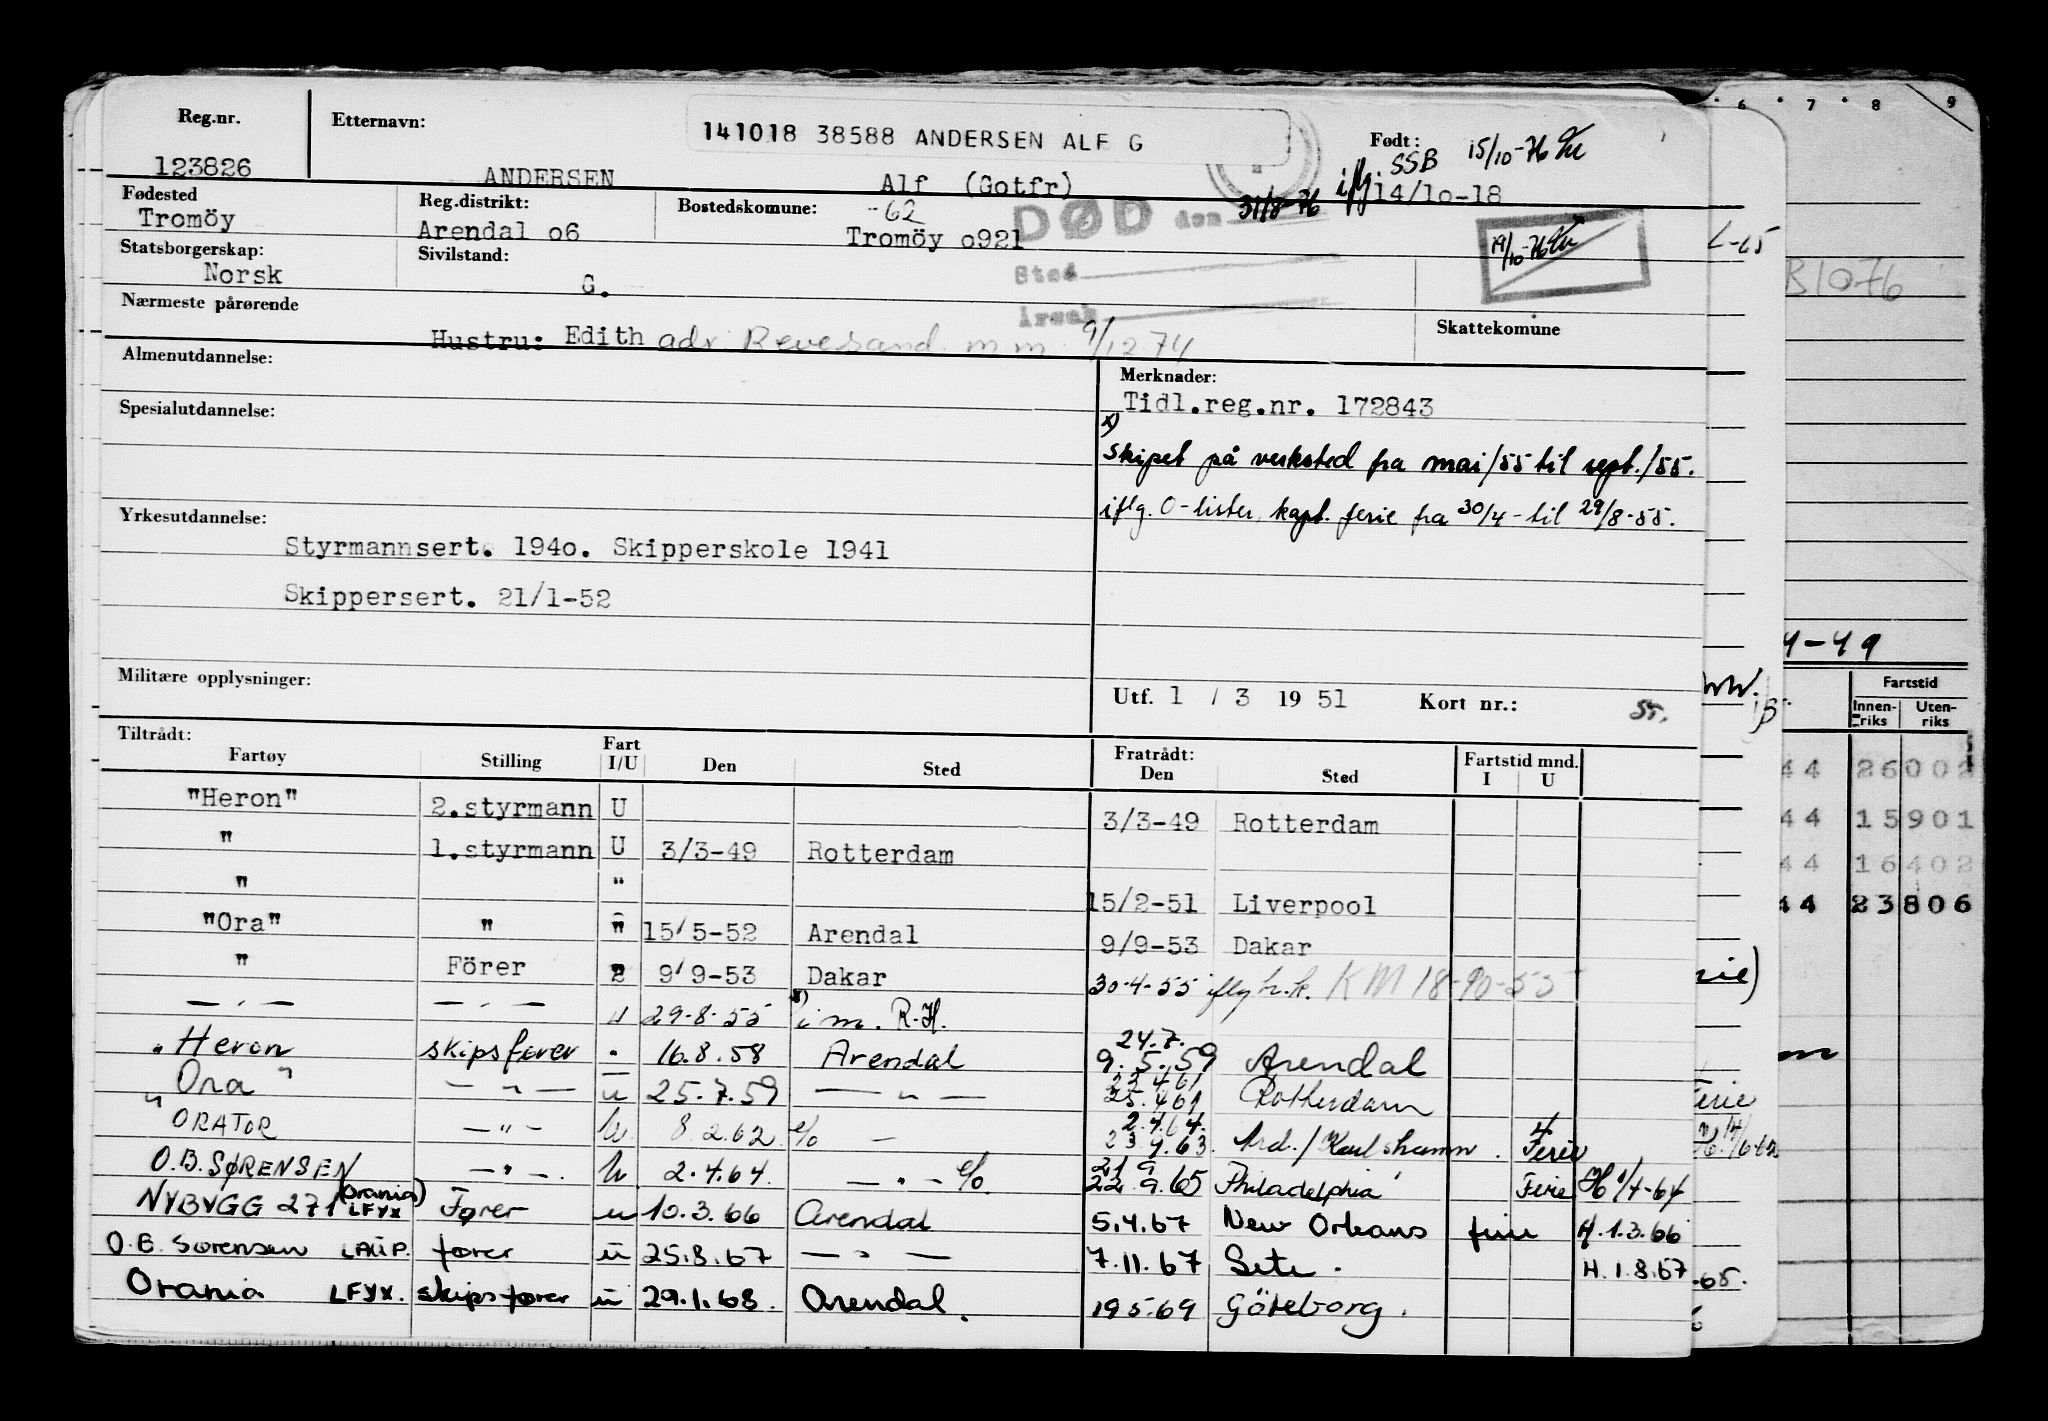 Reg.nr. Etternavn: 141018 38588 ANDERSEN ALF G Født: SSB 15/10-76
123826 ANDERSEN Alf (Gotfr) iflg. 14/10-18
Fødested Reg.distrikt: Bostedskomune: -62 DØD den 31/8-76
Tromöy Arendal o6 Tromöy o921 19/10-76
Statsborgerskap: Sivilstand: Sted
Norsk G.
Nærmeste pårørende Årsak Skattekomune
Hustru: Edith adr. Revesand m.m. 9/12 74
Almenutdannelse: Merknader:
Tidl.reg.nr. 172843
Spesialutdannelse:
x) skipet på verksted fra mai/55 til sept./55.
iflg. O-lister, kapt. ferie fra 30/4 - til 29/8-55.
Yrkesutdannelse:
Styrmannsert. 194o. Skipperskole 1941
Skippersert. 21/1-52
Militære opplysninger: Utf. 1 / 3 19 51 Kort nr.:
Tiltrådt: Fratrådt:
Fartøy Stilling Fart I/U Den Sted Den Sted Fartstid mnd. I U
"Heron" 2.styrmann U 3/3-49 Rotterdam
" 1.styrmann U 3/3-49 Rotterdam
" " 15/2-51 Liverpool
"Ora" " " 15/5-52 Arendal 9/9-53 Dakar
" Förer " 9/9-53 Dakar 30-4-55 iflg h.k. KM 18-10-55
— " — — " — u 29-8-55 x) i m. R.H.
" Heron skipsfører " 16.8.58 Arendal 24.7. 9.5.59 Arendal
" Ora " — " — u 25.7.59 — " — 22.4.61 25.4.61 Rotterdam
ORATOR — " — u 8.2.62 e/o — 2.4.64. 23.4.63 Ard./Karlshamn. 4 Ferie
O.B.SØRENSEN — " — u 2.4.64. — " — e/o 21 9 22.9.65 Philadelphia Ferie H 1/4-64
NYBYGG 271 (Orania) LFYX Fører u 10.3.66 Arendal 5.4.67 New Orleans ferie H.1.3.66
O.B. Sørensen fører u 25.8.67 — " — 7.11.67 Sete. H.1.8.67
Orania LFYX. skipsfører u 29.1.68. Arendal. 19.5.69 Göteborg.
6 7 8 9
B1076
4-49
Fartstid
Innenriks Utenriks
44 26002
44 15901
44 16402
44 23806
Ferie